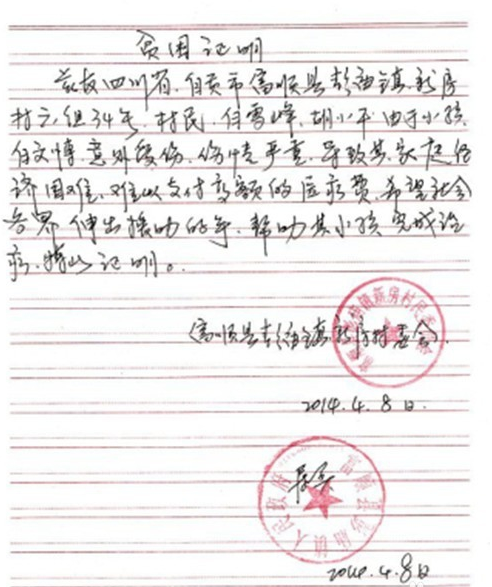 贫困证明
兹有四川省、自贡市富顺县彭庙镇新房
村六组34号、村民、任雪峰、胡小平由于小孩
任文博意外烧伤、伤情严重、导致其家庭经
济困难、难以支付高额的医疗费、希望社会
各界伸出援助的手、帮助其小孩完成治
疗、特此证明。
富顺县彭庙镇新房村委会
2014.4.8日.
属实
2014.4.8日